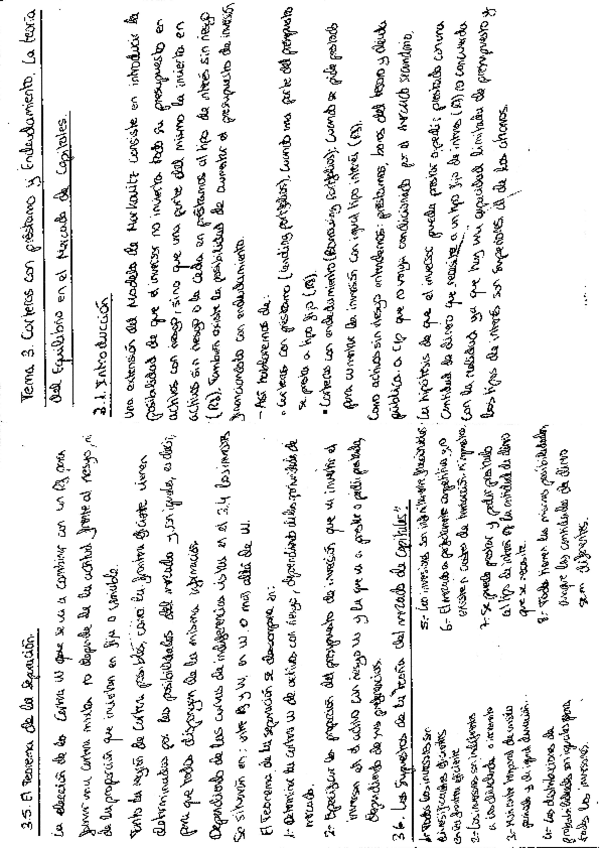 Tema 3. Carteras con préstamo y Endeudamiento. La teoría
del Equilibrio en el Mercado de Capitales.
3.1. Introducción
Una extensión del Modelo de Markowitz consiste en introducir la
posibilidad de que el inversor no invierta todo su presupuesto en
activos con riesgo, sino que una parte del mismo la invierta en
activos sin riesgo o la ceda en préstamos al tipo de interés sin riesgo
(Rf). También existe la posibilidad de aumentar el presupuesto de inversión
financiándolo con endeudamiento.
- Así hablaremos de:
• Carteras con préstamo (lending portfolios), cuando una parte del presupuesto
se presta a tipo fijo (Rf).
• Carteras con endeudamiento (Borrowing portfolios), cuando se pide prestado
para aumentar la inversión con igual tipo interés (Rf).
Como activos sin riesgo entendemos: préstamos, bonos del tesoro y deuda
pública a c/p que no venga condicionado por el mercado secundario.
La hipótesis de que el inversor pueda prestar o pedir prestado cualquier
cantidad de dinero que necesite a un tipo fijo de interés (Rf) no concuerda
con la realidad ya que hay una capacidad limitada de presupuesto y
los tipos de interés son superiores al de los ahorros.
3.5. El Teorema de la Separación
La elección de la Cartera W que se va a combinar con un Rf para
formar una cartera mixta no depende de la actitud frente al riesgo, ni
de la proporción que inviertan en fija o variable.
Tanto la región de cartera posibles, como la frontera eficiente vienen
determinadas por las posibilidades del mercado y son iguales, es decir,
para que todos dispongan de la misma información.
Dependiendo de las curvas de indiferencias vistas en el 3.4 los inversores
se situarán en: entre Rf y W, en W o más allá de W.
El Teorema de la separación se descompone en:
1- Determinar la cartera W de activos con riesgo, dependiendo de las
mercado.
2- Especificar la proporción del presupuesto de inversión que va invertir el
inversor en el activo con riesgo W y la que va a prestar o pedir prestada,
dependiendo de sus preferencias.
3.6. Los Supuestos de la Teoría del mercado de Capitales."
1- Todos los inversores son
diversificadores eficientes
en la frontera eficiente
2- Los inversores son indiferentes
a
3- Horizonte temporal de
periodo y de igual duración.
4- Las distribuciones de
probabilidades son iguales para
todos los inversores.
5- Las inversiones son infinitamente fraccionables.
6- El mercado es perfectamente competitivo y no
existen ni costes de transacción ni impuestos.
7- Se puede prestar y pedir prestado
al tipo de interés Rf la cantidad de dinero
que se necesite.
8- Todos tienen las mismas posibilidades,
aunque las cantidades de dinero
sean diferentes.